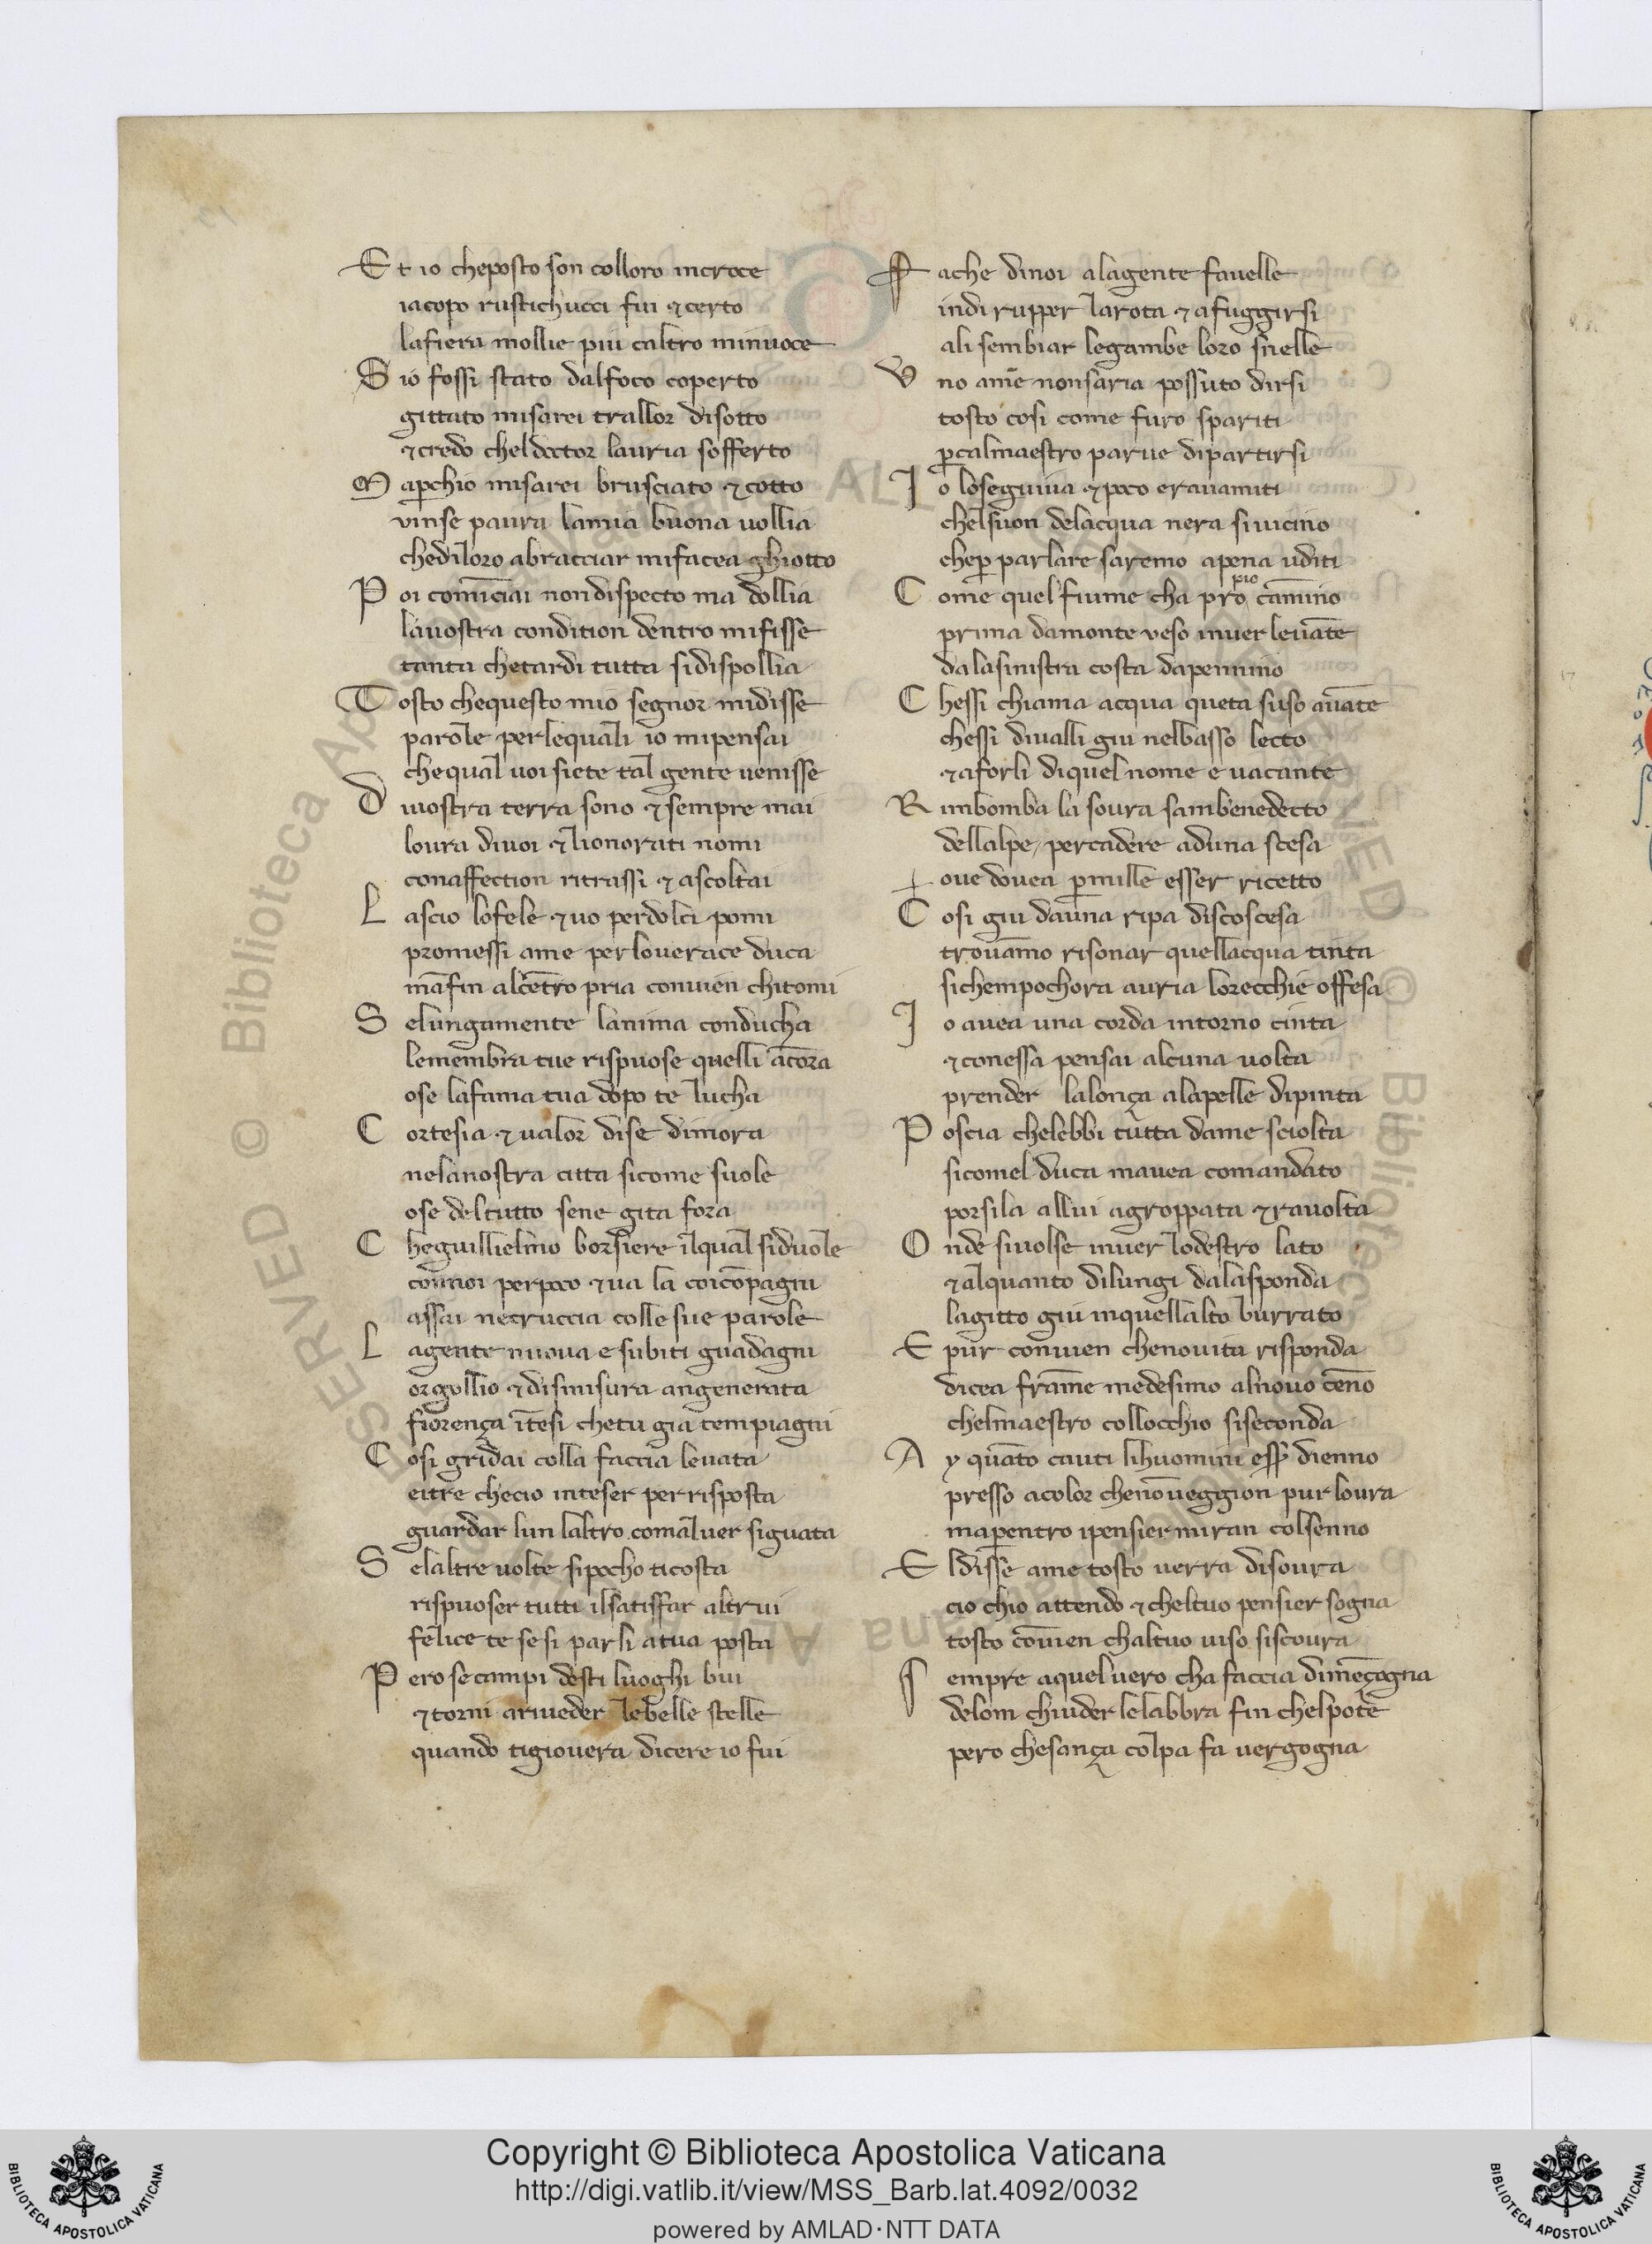 Et io cheposto son colloro incroce
iacopo rustichucci fui ⁊ certo
lafiera mollie piu caltro minuoce
S io fossi stato dalfoco coperto
gittato misarei trallor disotto
⁊ credo cheldoctor lauria sofferto
M aꝑchio misarei brusciato ⁊ cotto
vinse paura lamia buona uollia
chediloro abracciar mifacea ghiotto
P oi comīciai nondispecto ma dollia
lauostra condition dentro mifisse
tanta chetardi tutta sidispollia
T osto chequesto mio segnor midisse
parole perlequali io mipensai
chequal uoi siete tal gente uenisse
D iuostra terra sono ⁊ sempre mai
loura diuoi ⁊ lionorati nomi
conaffection ritrassi ⁊ ascoltai
L ascio lofele ⁊ uo perdolci pomi
promessi ame perlouerace duca
māfin alcētro pria conuien chitomi
S elungamente lanima conducha
lemembra tue rispuose quelli ācora
ose lafama tua dopo te lucha
C ortesia ⁊ ualor dise dimora
nelanostra citta sicome suole
ose deltutto sene gita fora
C heguillielmo borsiere ilqual siduole
connoi perpoco ⁊ ua la coicōpagni
assai necruccia colle sue parole
L agente nuoua e subiti guadagni
orgollio ⁊ dismisura angenerata
fiorença ītesi chetu gia tempiagni
C osi gridai colla faccia leuata
eitre checio inteser perrisposta
guardar lun laltro comaluer siguata
S elaltre uolte sipocho ticosta
rispuoser tutti ilsatisffar altrui
felice te sesi parli atua posta
P ero secampi desti luoghi bui
⁊ torni ariueder lebelle stelle
quando tigiouera dicere io fui
F ache dinoi alagente fauelle
indi rupper larota ⁊ afuggirsi
ali sembiar legambe loro snelle
V no amē nonsaria possuto dirsi
tosto cosi come furo spariti
ꝑcalmaestro parue dipartirsi
I o loseguiua ⁊ poco erauamiti
chelsuon delacqua nera siuicino
cheꝑ parlare saremo apena uditi
C ome quel fiume cha pro camīno
pio
prima damonte veso inuer leuāte
dalasinistra costa dapennino
C hessi chiama acqua queta suso auāte
chessi diualli giu nelbasso lecto
⁊ aforli diquel nome e uacante
R imbomba la soura sambenedecto
dellalpe / percadere aduna scesa
oue douea ꝑmille esser ricetto
C osi giu dauna ripa discoscesa
trouāmo risonar quellacqua tinta
sichempochora auria lorecchie offesa
I o auea una corda intorno cinta
⁊ conessa pensai alcuna uolta
prender lalonça alapelle dipinta
P oscia chelebbi tutta dame sciolta
sicomel duca mauea comandato
porsila allui agroppata ⁊ rauolta
O nde siuolse inuer lodestro lato
⁊ alquanto dilungi dalasponda
lagitto giu inquellalto burrato
E pur conuien chenouita risponda
dicea framme medesimo alnouo cēno
chelmaestro collocchio siseconda
A y quāto cauti lihuomini esser dienno
presso acolor chenōueggion pur loura
maꝑentro ipensier miran colsenno
E ldisse ame tosto uerra disoura
cio chio attendo ⁊ cheltuo pensier sogna
tosto cōuien chaltuo uiso siscoura
S empre aquel uero cha faccia dimēçogna
delom chiuder lelabbra fin chelpote
pero chesança colpa fa uergogna
Copyright © Biblioteca Apostolica Vaticana
http://digi.vatlib.it/view/MSS_Barb.lat.4092/0032
powered by AMLAD·NTT DATA